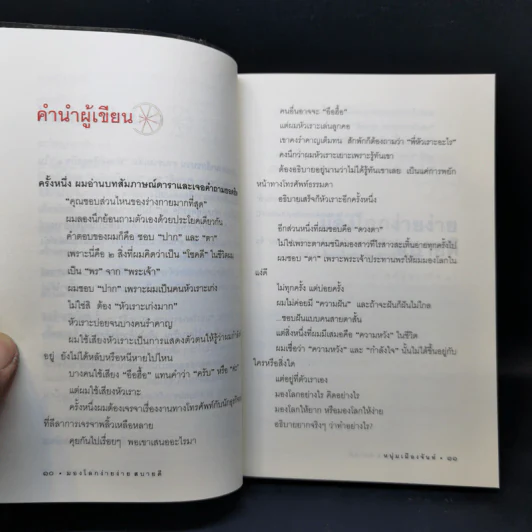 คำนำผู้เขียน
ครั้งหนึ่ง ผมอ่านบทสัมภาษณ์ดาราและเจอคำถามยอดฮิต
“คุณชอบส่วนไหนของร่างกายมากที่สุด”
ผมลองนึกย้อนถามตัวเองด้วยประโยคเดียวกัน
คำตอบของผมก็คือ ชอบ “ปาก” และ “ตา”
เพราะนี่คือ ๒ สิ่งที่ผมคิดว่าเป็น “โชคดี” ในชีวิตผม
เป็น “พร” จาก “พระเจ้า”
ผมชอบ “ปาก” เพราะผมเป็นคนหัวเราะเก่ง
ไม่ใช่สิ ต้อง “หัวเราะเก่งมาก”
หัวเราะบ่อยจนบางคนรำคาญ
ผมใช้เสียงหัวเราะเป็นการแสดงตัวตนให้รู้ว่าผมกำลังฟัง
อยู่ ยังไม่ได้หลับหรือหนีหายไปไหน
บางคนใช้เสียง “อือฮื้อ” แทนคำว่า “ครับ” หรือ “คะ”
แต่ผมใช้เสียงหัวเราะ
ครั้งหนึ่งผมต้องเจรจาเรื่องงานทางโทรศัพท์กับนักธุรกิจ
ที่ลีลาการเจรจาพลิ้วเหลือหลาย
คุยกันไปเรื่อยๆ พอเขาเสนออะไรมา
๑๐ • มองโลกง่ายง่าย สบายดี
คนอื่นอาจจะ “อือฮื้อ”
แต่ผมหัวเราะเสนลูกคอ
เขาคงรำคาญเต็มทน สักพักก็ต้องถามว่า “พี่หัวเราะอะไร”
คงนึกว่าผมหัวเราะเยาะเพราะรู้ทันเขา
ต้องอธิบายอยู่นานว่าไม่ได้รู้ทันเขาเลย เป็นแค่การพยัก
หน้าทางโทรศัพท์ธรรมดา
อธิบายเสร็จก็หัวเราะอีกครั้งหนึ่ง
อีกส่วนหนึ่งที่ผมชอบคือ “ดวงตา”
ไม่ใช่เพราะตาคมชนิดมองสาวทีไรสาวละเตี้นอายทุกครั้งไป
ผมชอบ “ตา” เพราะพระเจ้าประทานพรให้ผมมองโลกใน
แง่ดี
ไม่ทุกครั้ง แต่บ่อยครั้ง
ผมไม่ค่อยมี “ความฝัน” และถ้าฝันก็ฝันไม่ไกล
...ชอบฝันแบบคนสายตาสั้น
แต่สิ่งหนึ่งที่ผมมีเสมอคือ “ความหวัง” ในชีวิต
ผมเชื่อว่า “ความหวัง” และ “กำลังใจ” นั้นไม่ได้ขึ้นอยู่กับ
ใครหรือสิ่งใด
แต่อยู่ที่ตัวเราเอง
มองโลกอย่างไร คิดอย่างไร
มองโลกให้ยาก หรือมองโลกให้ง่าย
อธิบายยากจริงๆ ว่าทำอย่างไร?
หนุ่มเมืองจันท์ • ๑๑